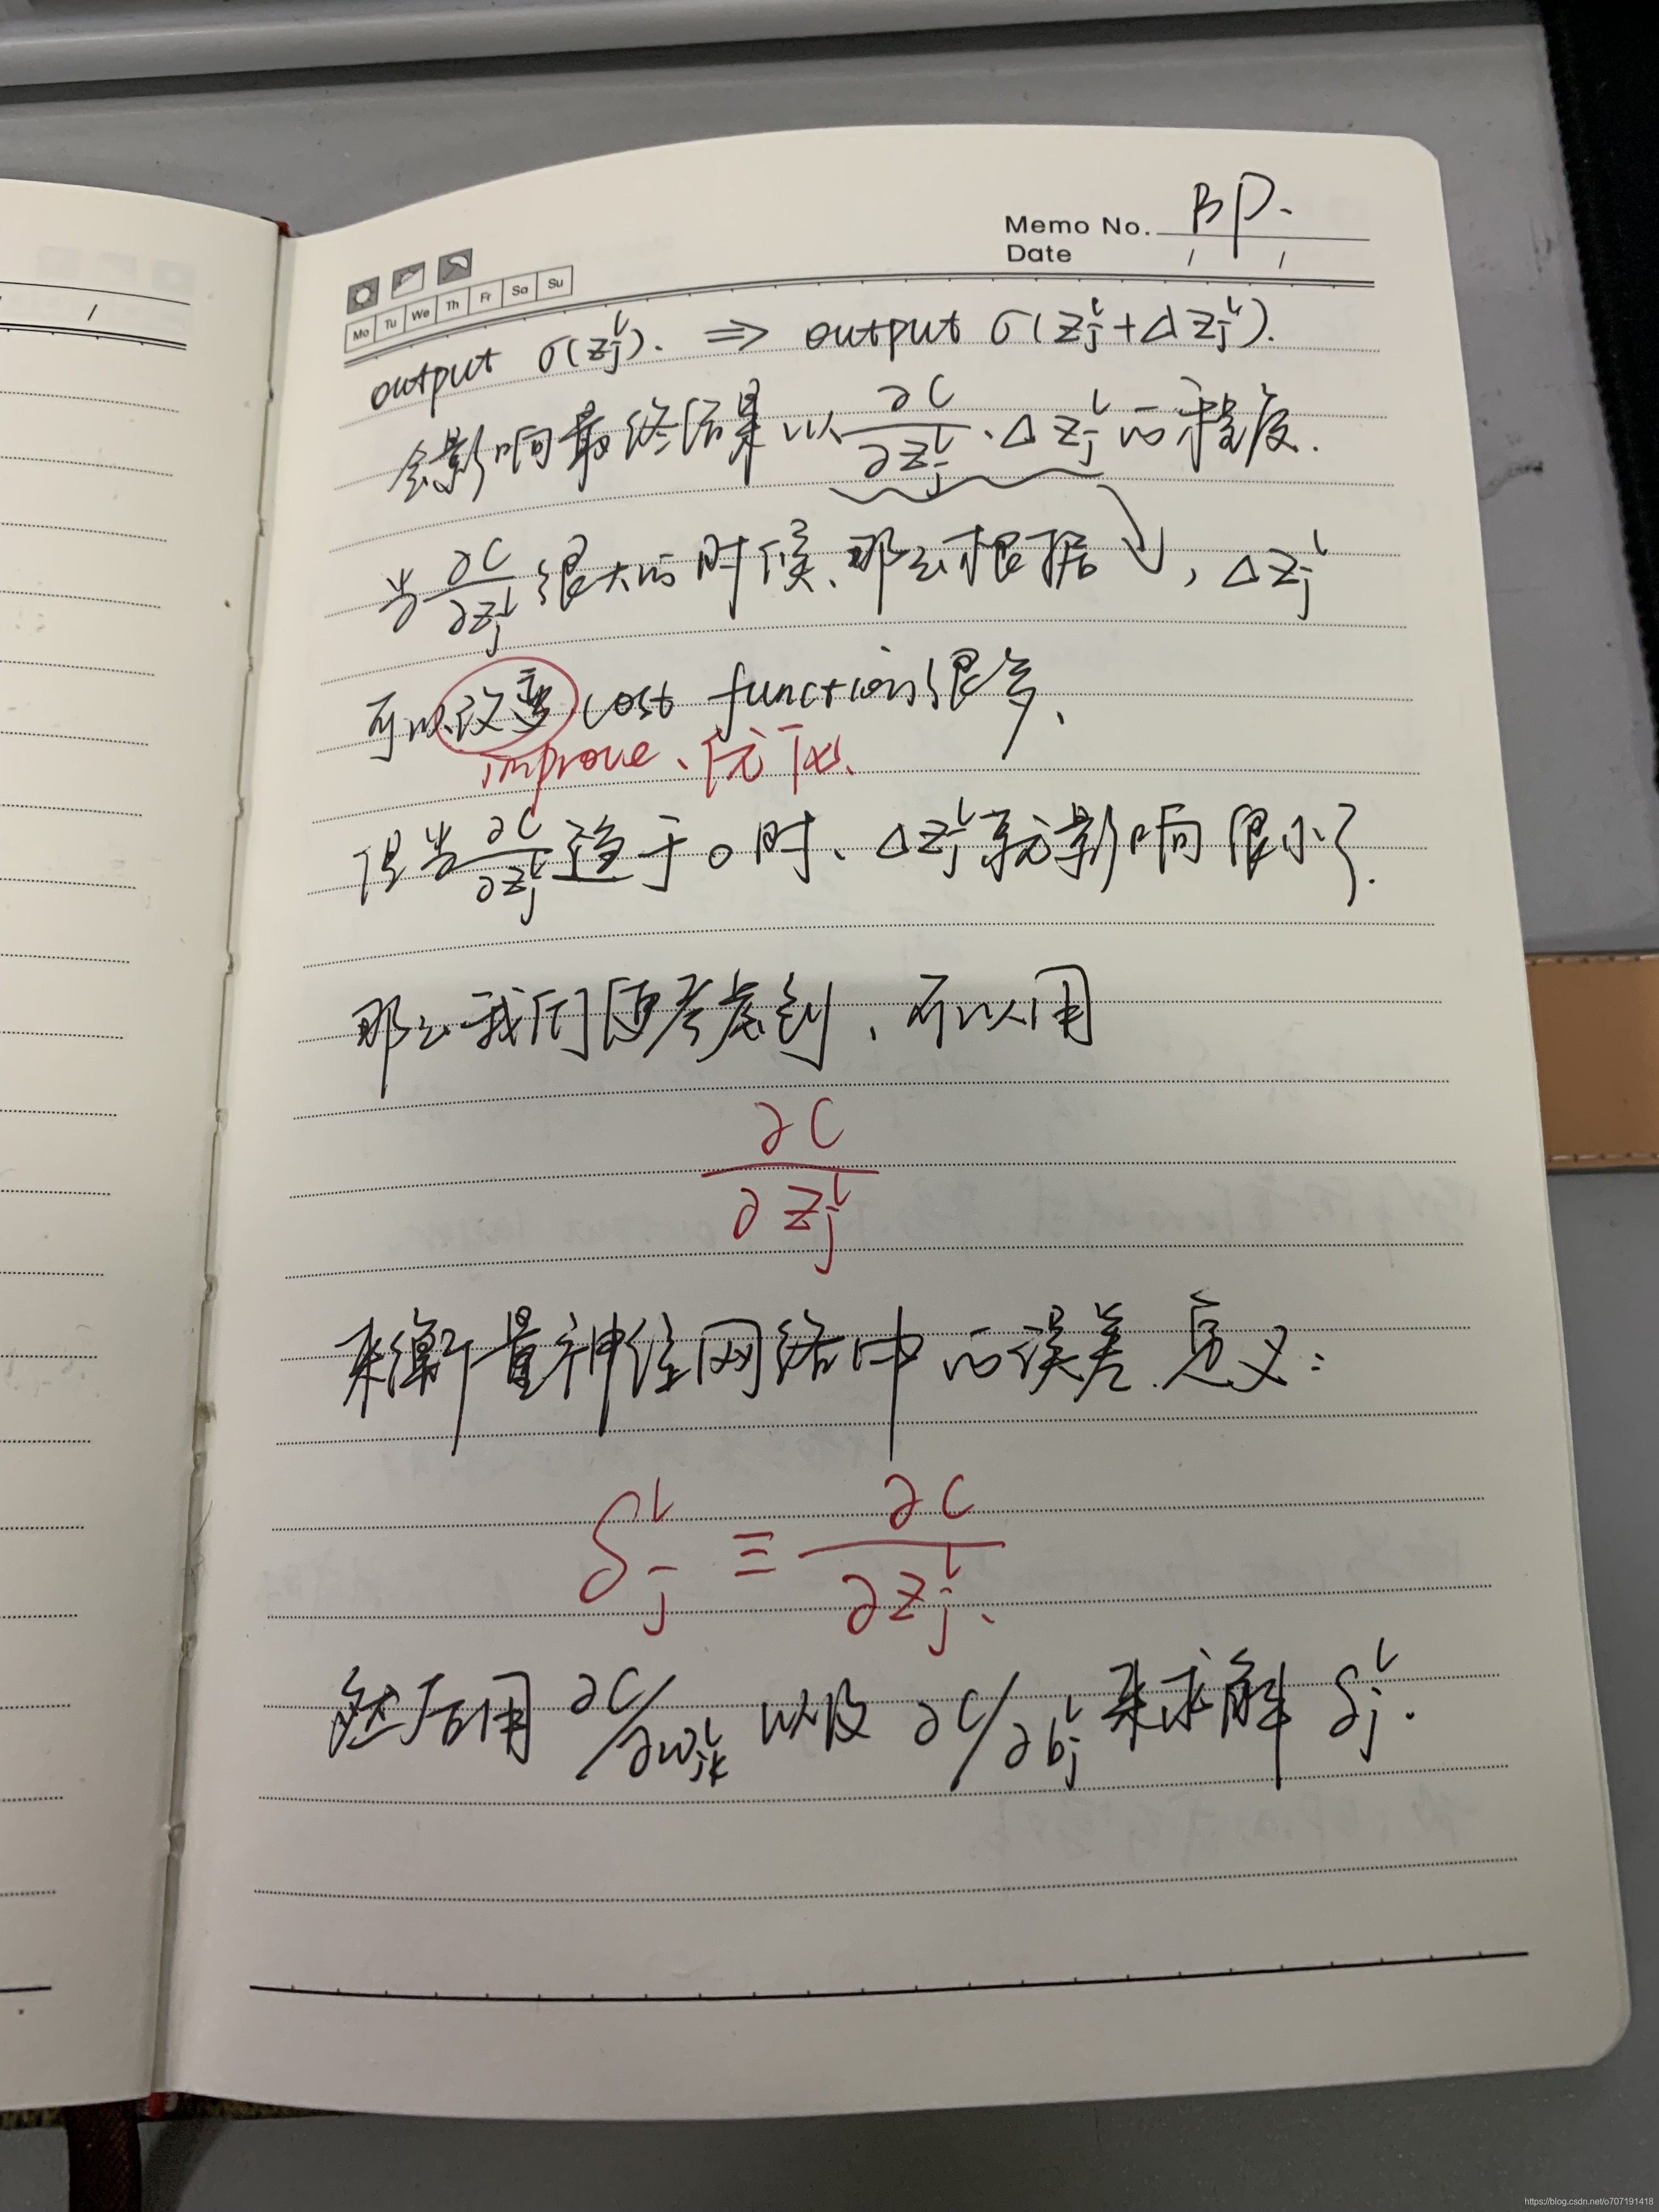 Memo No. BP.
Date / /
Mo Tu We Th Fr Sa Su
output σ(z_j^l). ⇒ output σ(z_j^l+Δz_j^l).
会影响最终结果以 ∂C/∂z_j^l · Δz_j^l 的程度.
当 ∂C/∂z_j^l 很大的时候、那么根据 , Δz_j^l
可以改变 cost function 很多、
improve、优化、
但当 ∂C/∂z_j^l 趋于0时、Δz_j^l 就影响很小了.
那么我们考虑到、可以用
∂C/∂z_j^l
来衡量神经网络中的误差.定义:
δ_j^l ≡ ∂C/∂z_j^l、
然后用 ∂C/∂w_jk^l 以及 ∂C/∂b_j^l 来求解 δ_j^l.
https://blog.csdn.net/o707191418